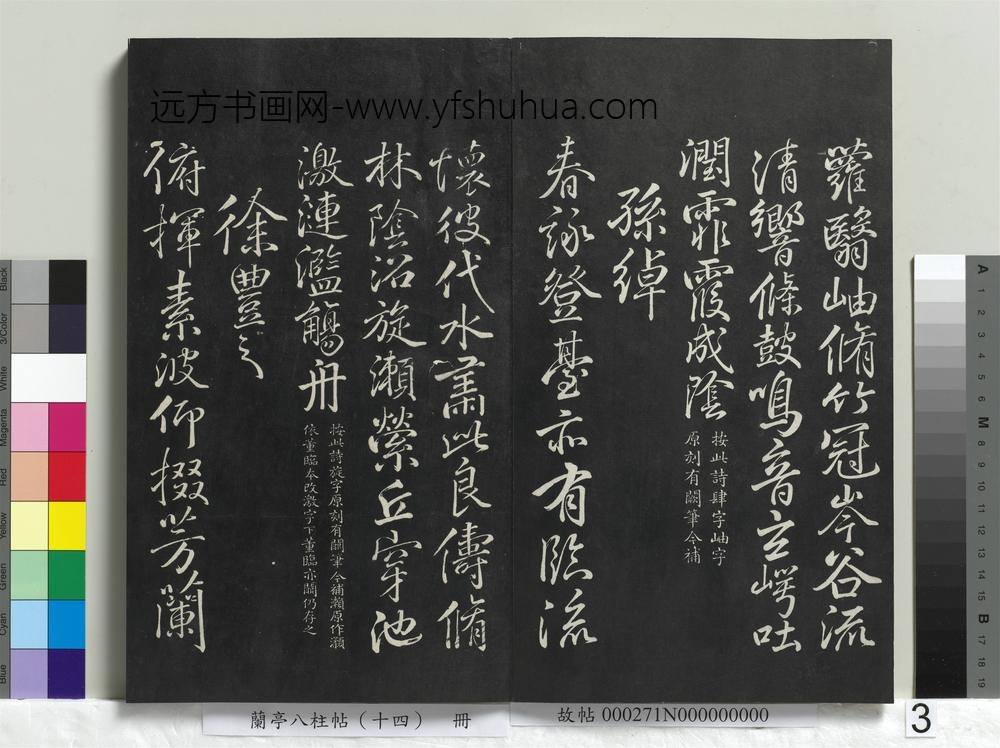 远方书画网-www.yfshuhua.com
蘿翳岫脩竹冠岑谷流
清響條鼓鳴音玄崿吐
潤霏霧成陰
按此詩肆字岫字
原刻有闕筆今補
孫綽
春詠登臺亦有臨流
懷彼伐木肅此良儔脩
林陰沼旋瀨縈丘穿池
激漣濫觴舟
按此詩旋字原刻有闕筆今補瀨原作灝
依董臨本改激字下董臨亦闕仍存之
徐豐之
俯揮素波仰掇芳蘭
蘭亭八柱帖（十四） 冊
故帖 000271N000000000
3
Black
3/Color
White
Magenta
Red
Yellow
Green
Cyan
Blue
A
1
2
3
4
5
6
M
8
9
10
11
12
13
14
15
B
17
18
19